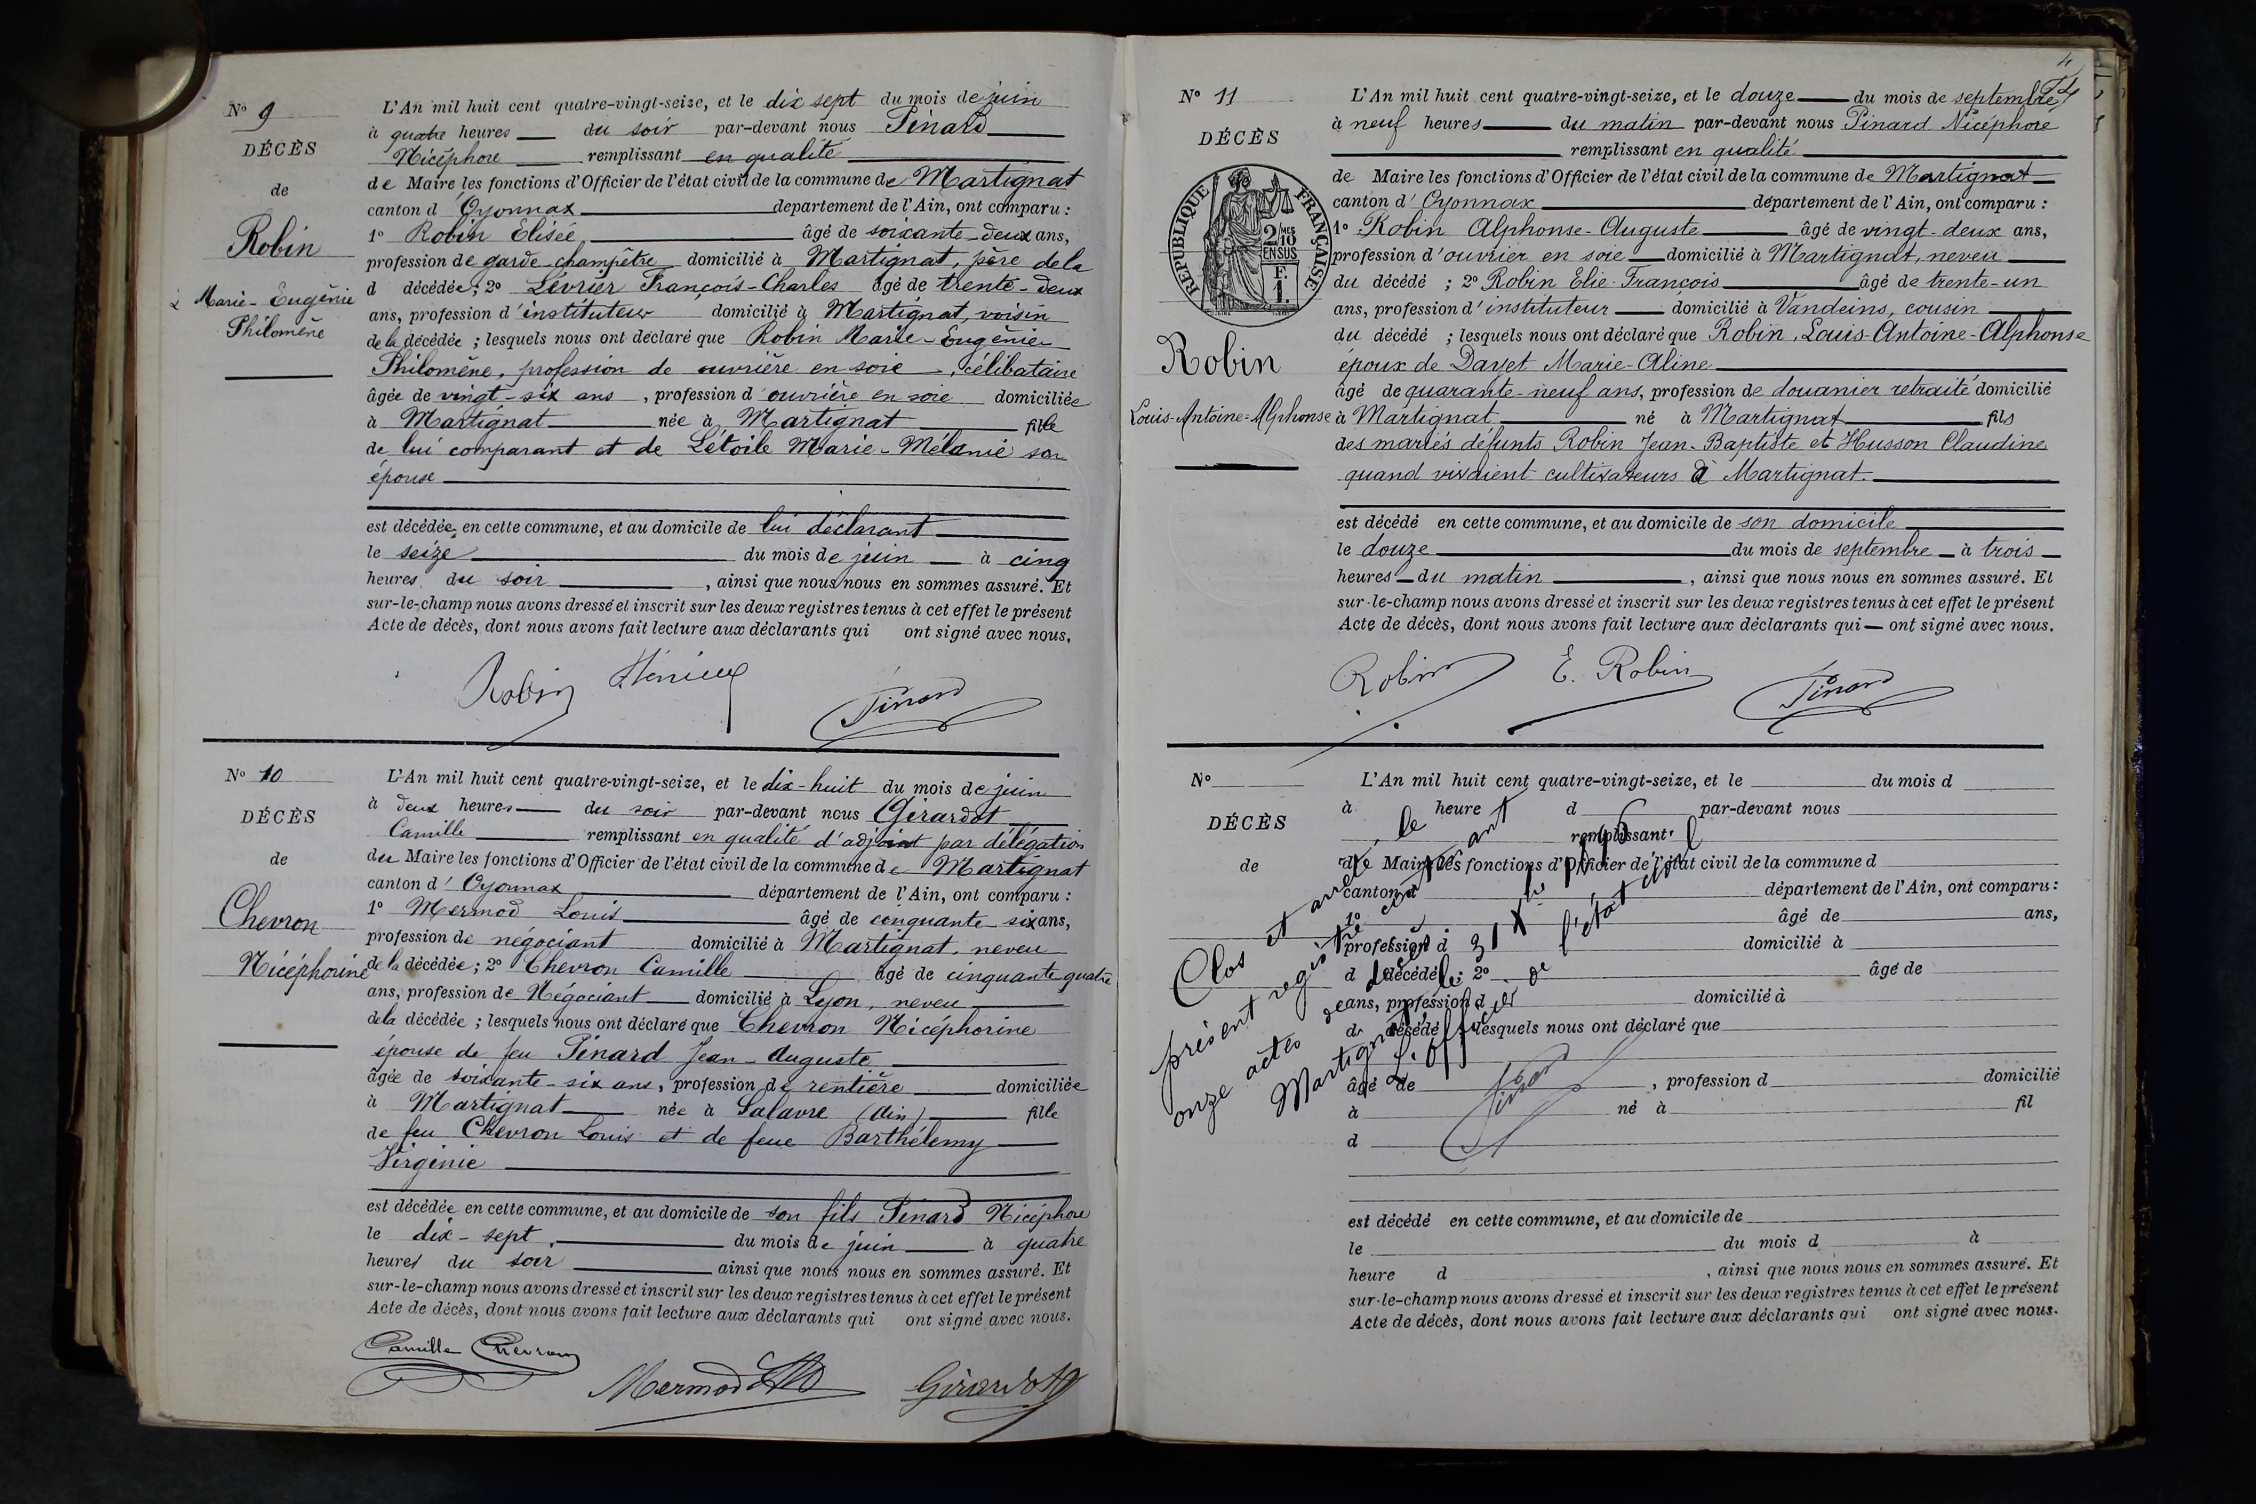 N° 9
DÉCÈS
de
Robin
Marie-Eugénie
Philomène
L'An mil huit cent quatre-vingt-seize, et le dix sept du mois de juin
à quatre heures du soir par-devant nous Pinard
Nicéphore remplissant en qualité
de Maire les fonctions d'Officier de l'état civil de la commune de Martignat
canton d Oyonnax departement de l'Ain, ont comparu :
1° Robin Elisée âgé de soixante-deux ans,
profession de garde champêtre domicilié à Martignat, père de la
d décédée; 2° Lévrier François-Charles âgé de trente-deux
ans, profession d'instituteur domicilié à Martignat, voisin
de la décédée ; lesquels nous ont déclaré que Robin Marie-Eugénie
Philomène, profession de ouvrière en soie, célibataire
âgée de vingt-six ans, profession d'ouvrière en soie domiciliée
à Martignat née à Martignat fille
de lui comparant et de Létoile Marie-Mélanie son
épouse
est décédée, en cette commune, et au domicile de lui déclarant
le seize du mois de juin à cinq
heures du soir, ainsi que nous nous en sommes assuré. Et
sur-le-champ nous avons dressé et inscrit sur les deux registres tenus à cet effet le présent
Acte de décès, dont nous avons fait lecture aux déclarants qui ont signé avec nous.
Robin Pinard
N° 10
DÉCÈS
de
Chevron
Nicéphorine
L'An mil huit cent quatre-vingt-seize, et le dix-huit du mois de juin
à deux heures du soir par-devant nous Girardot
Camille remplissant en qualité d'adjoint par délégation
du Maire les fonctions d'Officier de l'état civil de la commune de Martignat
canton d'Oyonnax département de l'Ain, ont comparu :
1° Mermod Louis âgé de cinquante six ans,
profession de négociant domicilié à Martignat, neveu
de la décédée; 2° Chevron Camille âgé de cinquante quatre
ans, profession de Négociant domicilié à Lyon, neveu
de la décédée ; lesquels nous ont déclaré que Chevron Nicéphorine
épouse de feu Pinard Jean-Auguste
âgée de soixante-six ans, profession de rentière domiciliée
à Martignat née à Salavre (Ain) fille
de feu Chevron Louis et de feue Barthélemy
Virginie
est décédée en cette commune, et au domicile de son fils Pinard Nicéphore
le dix-sept du mois de juin à quatre
heures du soir ainsi que nous nous en sommes assuré. Et
sur-le-champ nous avons dressé et inscrit sur les deux registres tenus à cet effet le présent
Acte de décès, dont nous avons fait lecture aux déclarants qui ont signé avec nous.
Camille Chevron
Mermod Girardot
N° 11
DÉCÈS
RÉPUBLIQUE FRANÇAISE
2/10 MES
EN SUS
F.
1.
Robin
Louis-Antoine-Alphonse
L'An mil huit cent quatre-vingt-seize, et le douze du mois de septembre
à neuf heures du matin par-devant nous Pinard Nicéphore
remplissant en qualité
de Maire les fonctions d'Officier de l'état civil de la commune de Martignat
canton d'Oyonnax département de l'Ain, ont comparu :
1° Robin Alphonse-Auguste âgé de vingt-deux ans,
profession d'ouvrier en soie domicilié à Martignat, neveu
du décédé ; 2° Robin Elie-François âgé de trente-un
ans, profession d'instituteur domicilié à Vandeins, cousin
du décédé ; lesquels nous ont déclaré que Robin, Louis-Antoine-Alphonse
époux de Dayet Marie-Aline
âgé de quarante-neuf ans, profession de douanier retraité domicilié
à Martignat né à Martignat fils
des mariés défunts Robin Jean-Baptiste et Husson Claudine
quand vivaient cultivateurs à Martignat.
est décédé en cette commune, et au domicile de son domicile
le douze du mois de septembre à trois
heures du matin, ainsi que nous nous en sommes assuré. Et
sur-le-champ nous avons dressé et inscrit sur les deux registres tenus à cet effet le présent
Acte de décès, dont nous avons fait lecture aux déclarants qui ont signé avec nous.
Robin E. Robin Pinard
N°
DÉCÈS
de
L'An mil huit cent quatre-vingt-seize, et le du mois d
à heure d par-devant nous
remplissant
d Maire les fonctions d'Officier de l'état civil de la commune d
canton d département de l'Ain, ont comparu :
1° âgé de ans,
profession d domicilié à
d décédé ; 2° âgé de
ans, profession d domicilié à
d décédé ; lesquels nous ont déclaré que
âgé de , profession d domicilié
à né à fil
d
est décédé en cette commune, et au domicile de
le du mois d à
heure d , ainsi que nous nous en sommes assuré. Et
sur-le-champ nous avons dressé et inscrit sur les deux registres tenus à cet effet le présent
Acte de décès, dont nous avons fait lecture aux déclarants qui ont signé avec nous.
Clos et arrêté le
présent registre contenant
onze actes de décès
Martignat, le 31 Xbre 1896
L'officier de l'état civil
Pinard